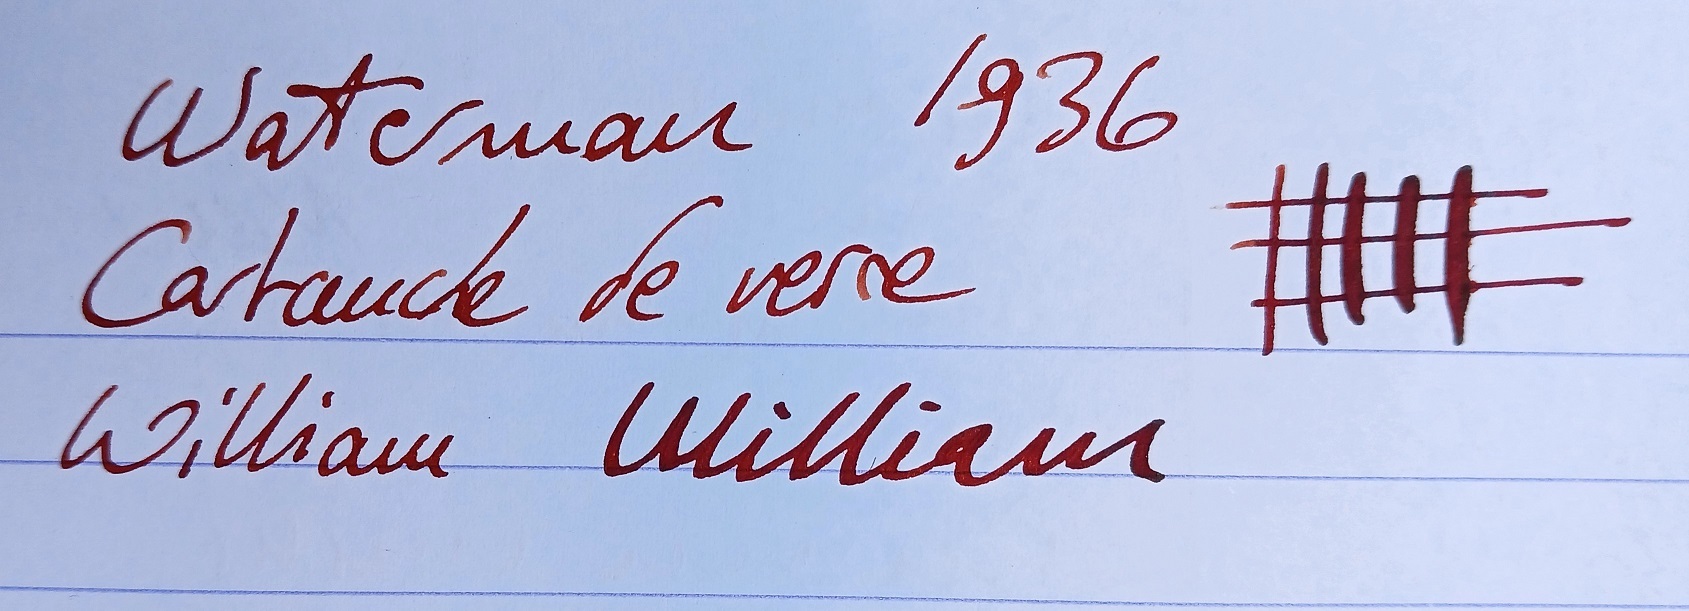 Waterman 1936
Cartouche de verre
William William